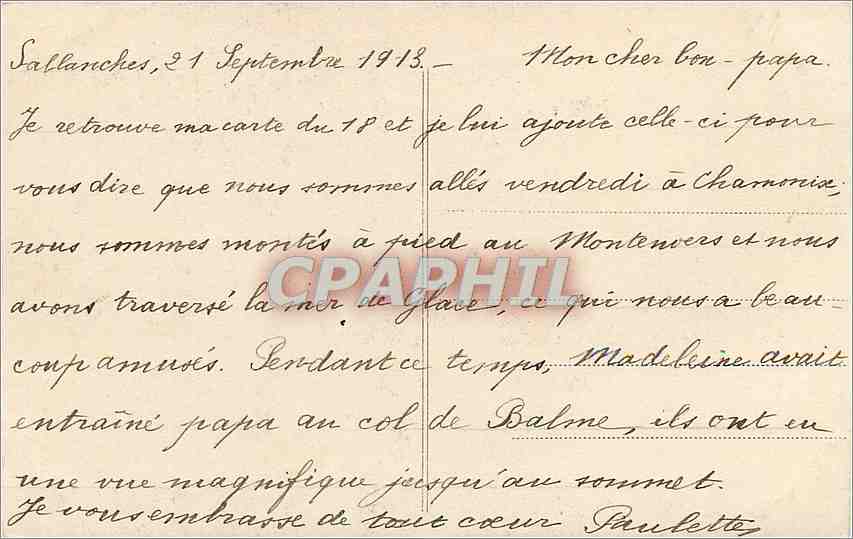 Sallanches, 21 Septembre 1913. – Mon cher bon-papa.
Je retrouve ma carte du 18 et je lui ajoute celle-ci pour
vous dire que nous sommes allés vendredi à Chamonix;
nous sommes montés à pied au Montenvers et nous
CPAPHIL
avons traversé la mer de Glace, ce qui nous a beau-
coup amusés. Pendant ce temps, Madeleine avait
entraîné papa au col de Balme, ils ont eu
une vue magnifique jusqu'au sommet.
Je vous embrasse de tout cœur Paulette